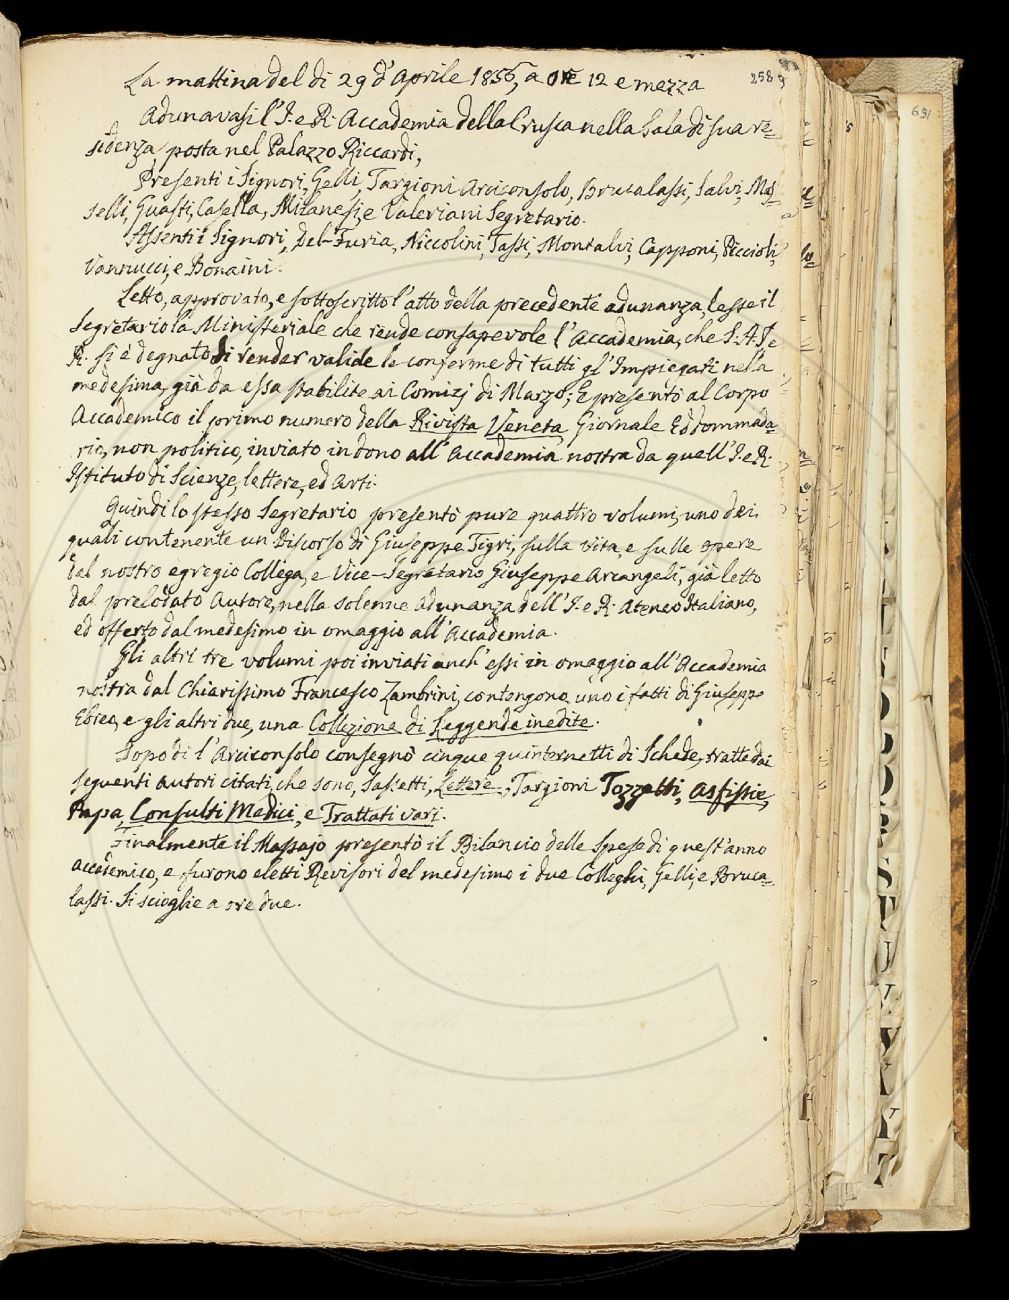 258
La mattina del dì 29 d'Aprile 1856, a ore 12 e mezza
Adunavasi l'I. e R. Accademia della Crusca nella Sala di sua re=
sidenza, posta nel Palazzo Riccardi,
Presenti i Signori, Gelli, Targioni Arciconsolo, Brucalassi, Salvi, Ma=
selli, Guasti, Casella, Milanesi, e Valeriani Segretario.
Assenti i Signori, Del-Furia, Niccolini, Tassi, Montalvi, Capponi, Piccioli,
Vannucci, e Bonaini.
Letto, approvato, e sottoscritto l'atto della precedente adunanza, lesse il
Segretario la Ministeriale che rende consapevole l'Accademia, che S. A. I. e
R. si è degnato di render valide le conferme di tutti gl'Impiegati nella
medesima, già da essa stabilite ai Comizj di Marzo; E presentò al Corpo
Accademico il primo numero della Rivista Veneta, Giornale Eddommada=
rio, non politico, inviato in dono all'Accademia nostra da quell'I. e R.
Istituto di Scienze, lettere, ed Arti.
Quindi lo stesso Segretario presentò pure quattro volumi, uno dei
quali contenente un Discorso di Giuseppe Tigri, sulla vita, e sulle opere
dal nostro egregio Collega, e Vice-Segretario Giuseppe Arcangeli, già letto
dal prelodato Autore, nella solenne adunanza dell'I. e R. Ateneo Italiano,
ed offerto dal medesimo in omaggio all'Accademia.
Gli altri tre volumi poi inviati anch'essi in omaggio all'Accademia
nostra dal Chiarissimo Francesco Zambrini, contengono, uno i fatti di Giuseppe
Ebreo, e gli altri due, una Collezione di Leggende inedite.
Dopo di l'Arciconsolo consegnò cinque quinternetti di Schede, tratte dai
seguenti Autori citati, che sono, Sassetti, Lettere, Targioni Tozzetti, Asfissie,
Papa, Consulti Medici, e Trattati vari.
Finalmente il Massajo presentò il Bilancio delle Spese di quest'anno
accademico, e furono eletti Revisori del medesimo i due Colleghi, Gelli, e Bruca=
lassi. Si scioglie a ore due.